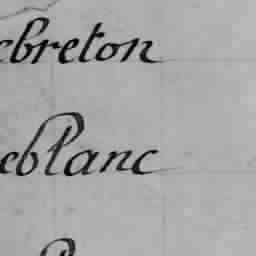 ebreton
eblanc